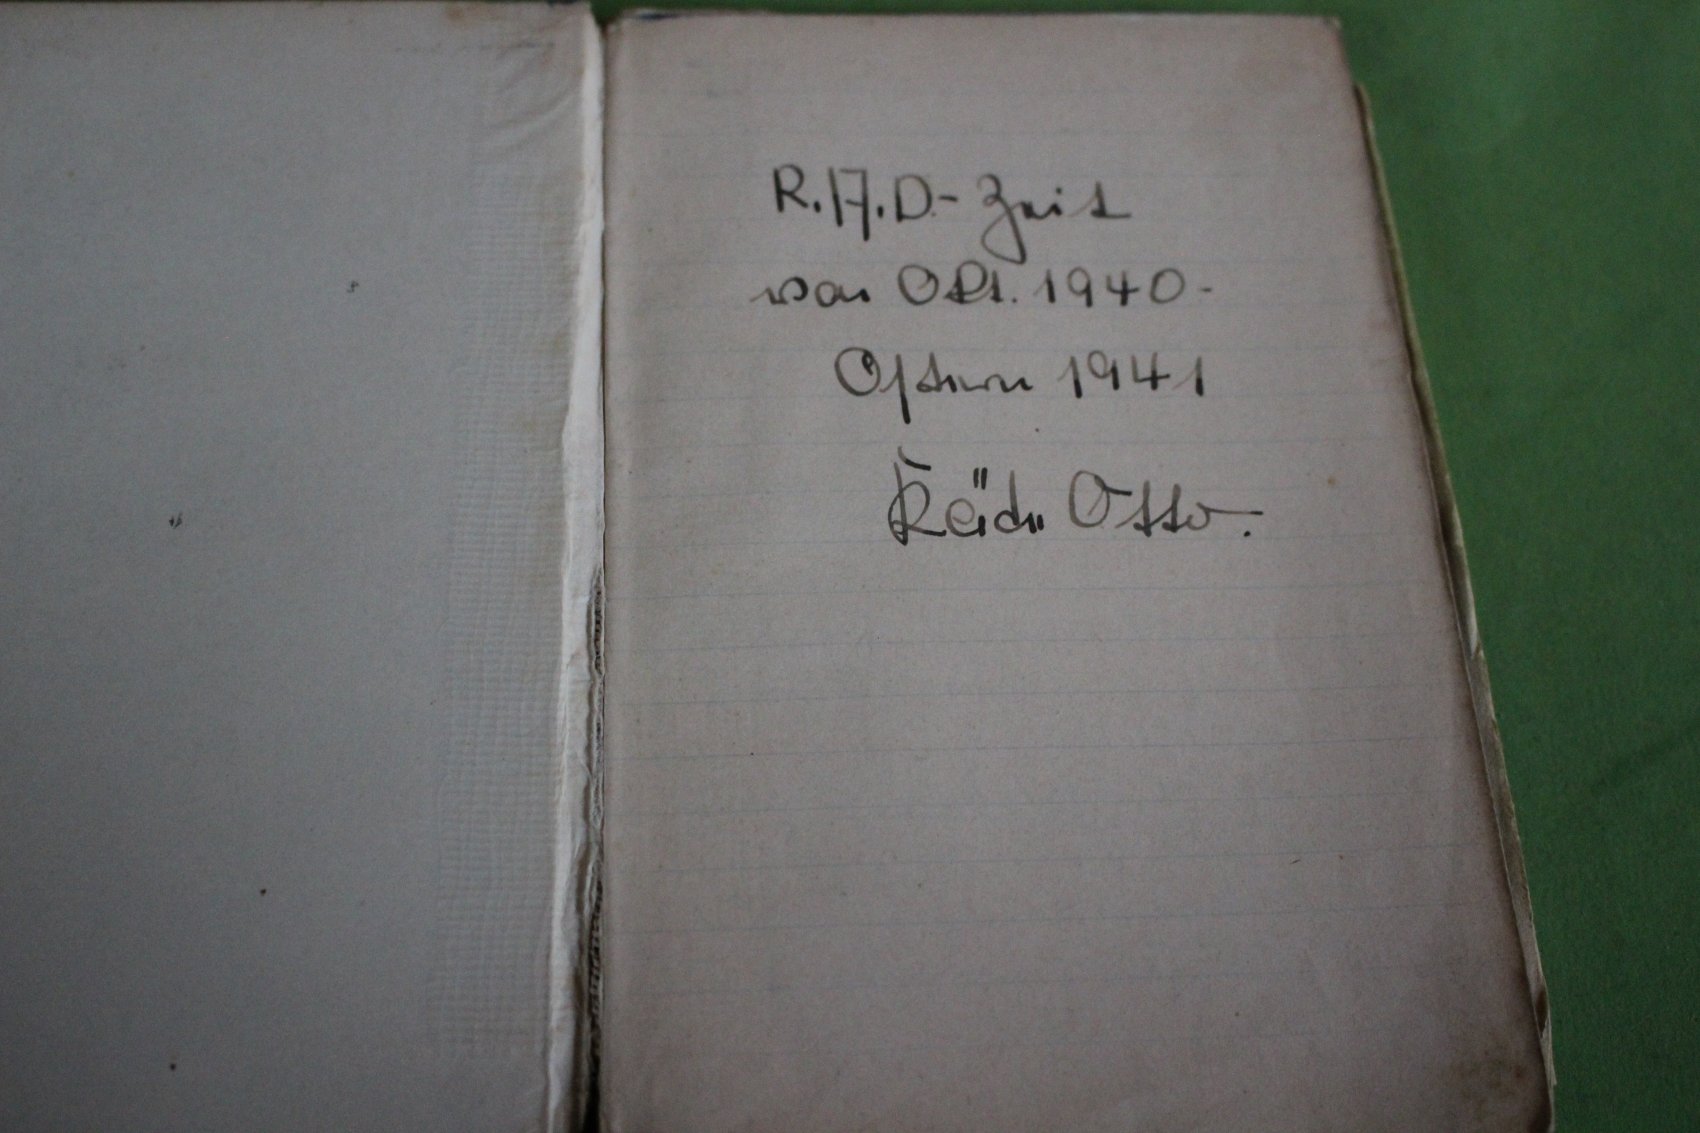 R.A.D.-Zeit
von Okt. 1940-
Ostern 1941
Otto.